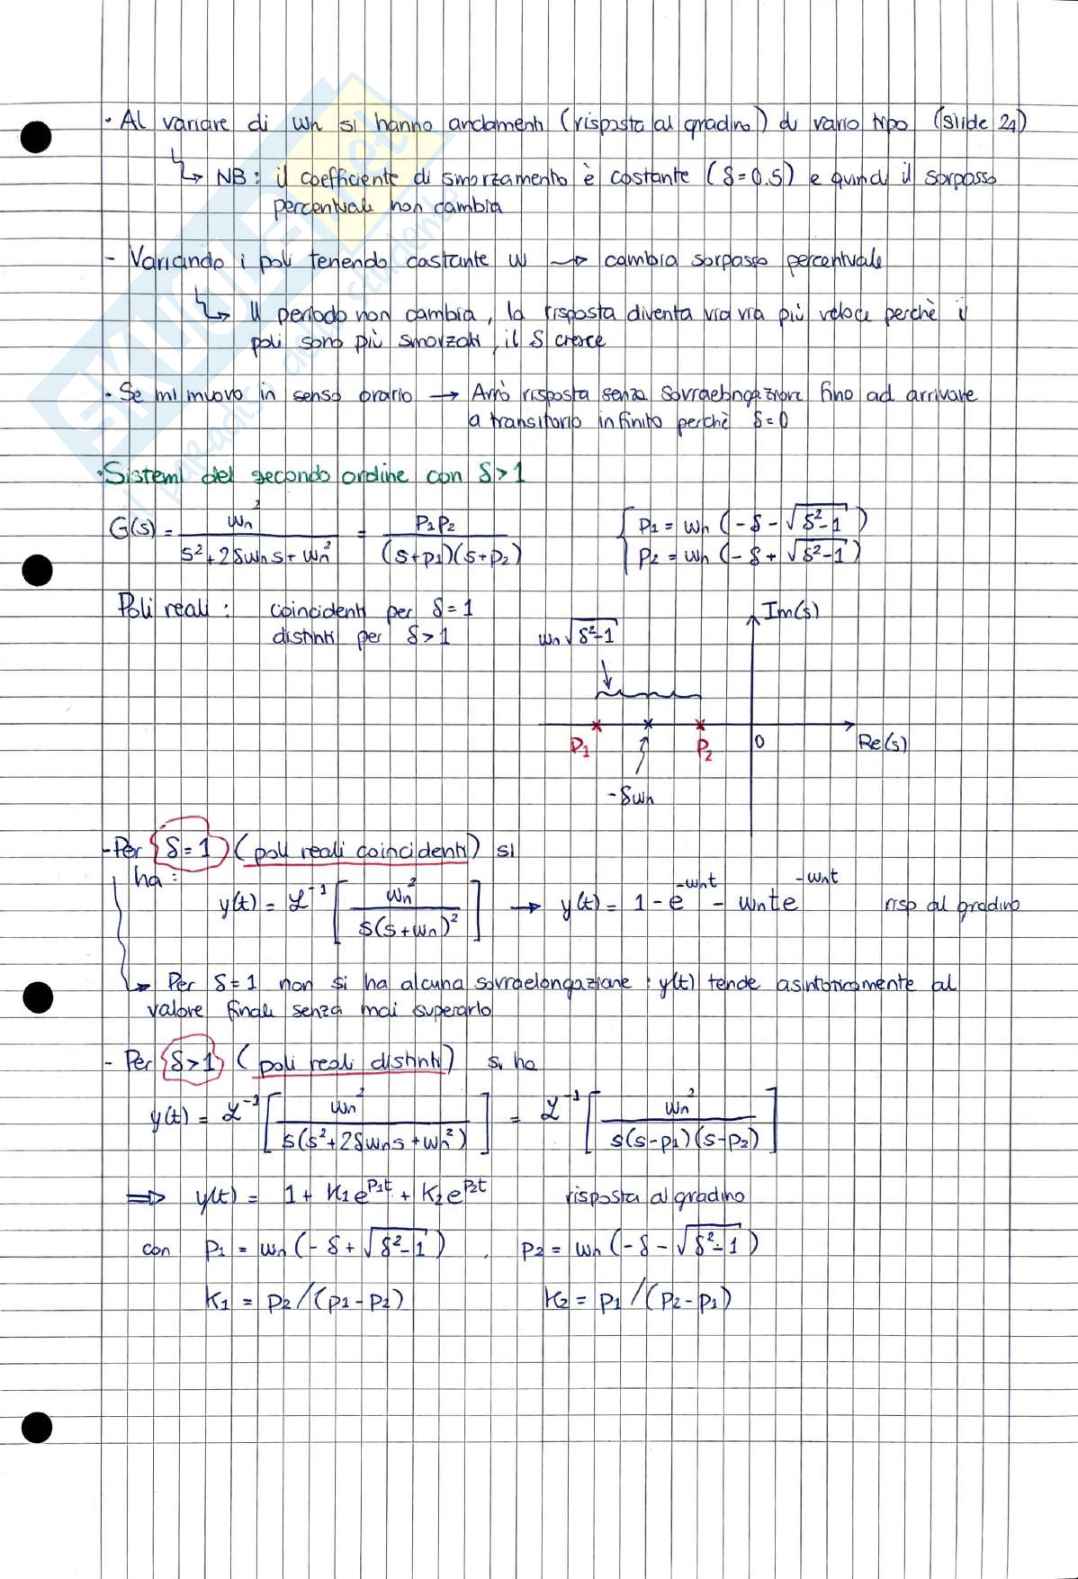 · Al variare di ωn si hanno andamenti (risposta al gradino) di vario tipo (slide 24)
↳ NB: il coefficiente di smorzamento è costante (δ=0.5) e quindi il sorpasso
percentuale non cambia
- Variando i poli tenendo costante ω → cambia sorpasso percentuale
↳ Il periodo non cambia, la risposta diventa via via più veloce perchè i
poli sono più smorzati, il δ cresce
· Se mi muovo in senso orario → Avrò risposta senza sovraelongazione fino ad arrivare
a transitorio infinito perchè δ=0
· Sistemi del secondo ordine con δ>1
G(s) = ωn² / (s²+2δωns+ωn²) = P1P2 / ((s+p1)(s+p2))
{ P1 = ωn (-δ - √(δ²-1))
{ P2 = ωn (-δ + √(δ²-1))
Poli reali : coincidenti per δ=1
distinti per δ>1
ωn√(δ²-1)
Im(s)
P1
P2
0
Re(s)
-δωn
- Per δ=1 (poli reali coincidenti) si
ha :
y(t) = ℒ⁻¹[ ωn² / (s(s+ωn)²) ] → y(t) = 1 - e^(-ωnt) - ωnte^(-ωnt) risp al gradino
↳ Per δ=1 non si ha alcuna sovraelongazione : y(t) tende asintoticamente al
valore finale senza mai superarlo
- Per δ>1 (poli reali distinti) si ha
y(t) = ℒ⁻¹[ ωn² / (s(s²+2δωns+ωn²)) ] = ℒ⁻¹[ ωn² / (s(s-p1)(s-p2)) ]
⇒ y(t) = 1 + K1e^(P1t) + K2e^(P2t) risposta al gradino
con P1 = ωn (-δ + √(δ²-1)) , P2 = ωn (-δ - √(δ²-1))
K1 = P2/(P1-P2) K2 = P1/(P2-P1)
SKUOLA.net
il paradiso dello studente